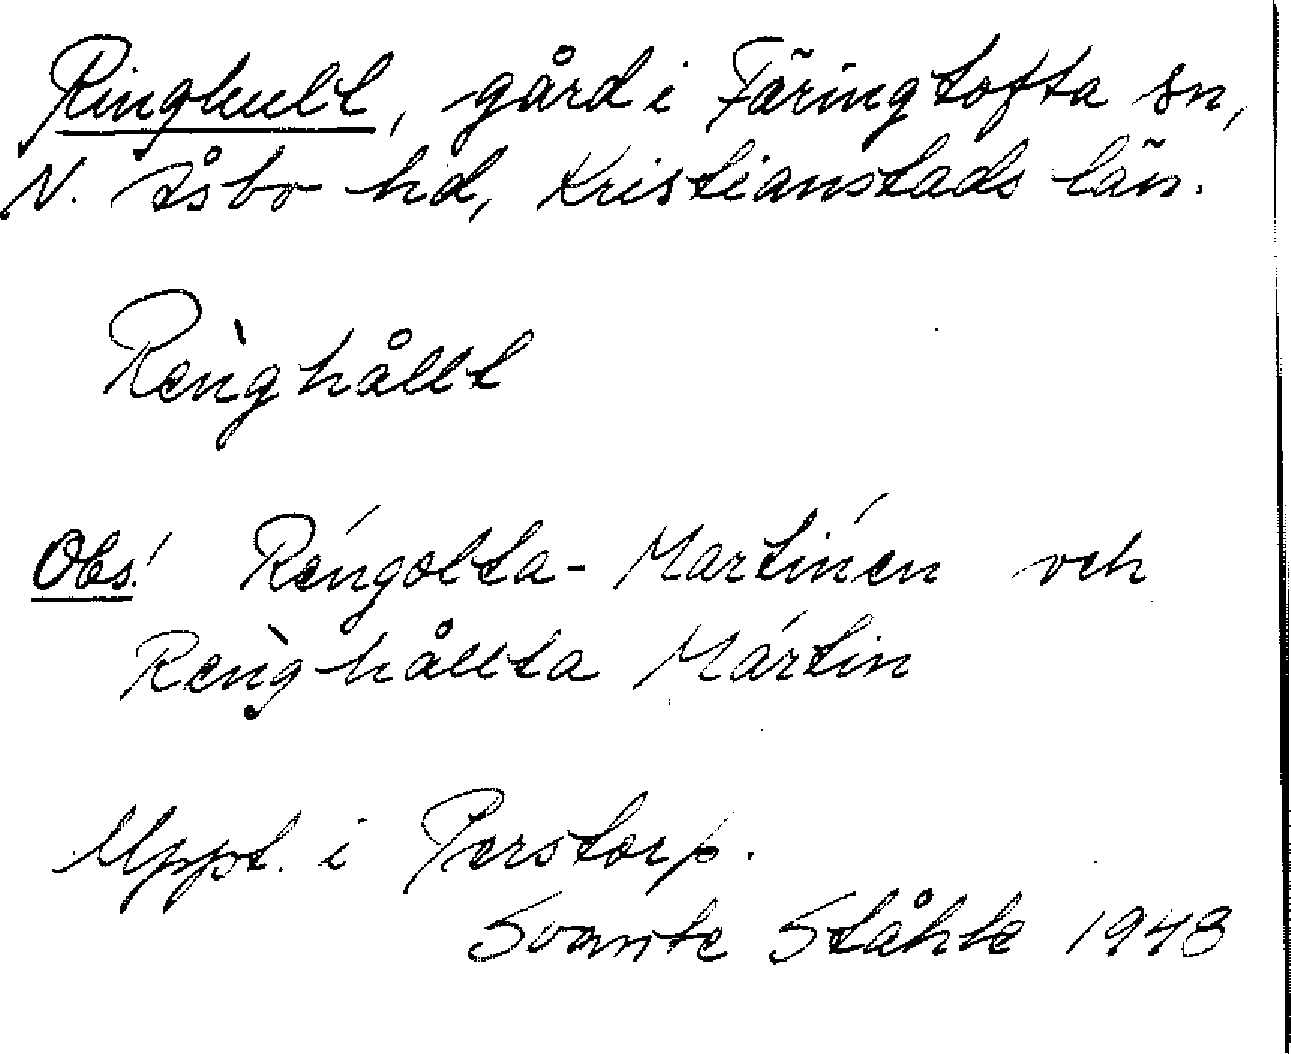 Ringhult, gård i Färingtofta sn,
N. Åsbo hd, Kristianstads län.
Rènghållt
Obs! Réngolta- Martinén och
Rènghållta Mártin
Uppt. i Perstorp.
Svante Ståhle 1943